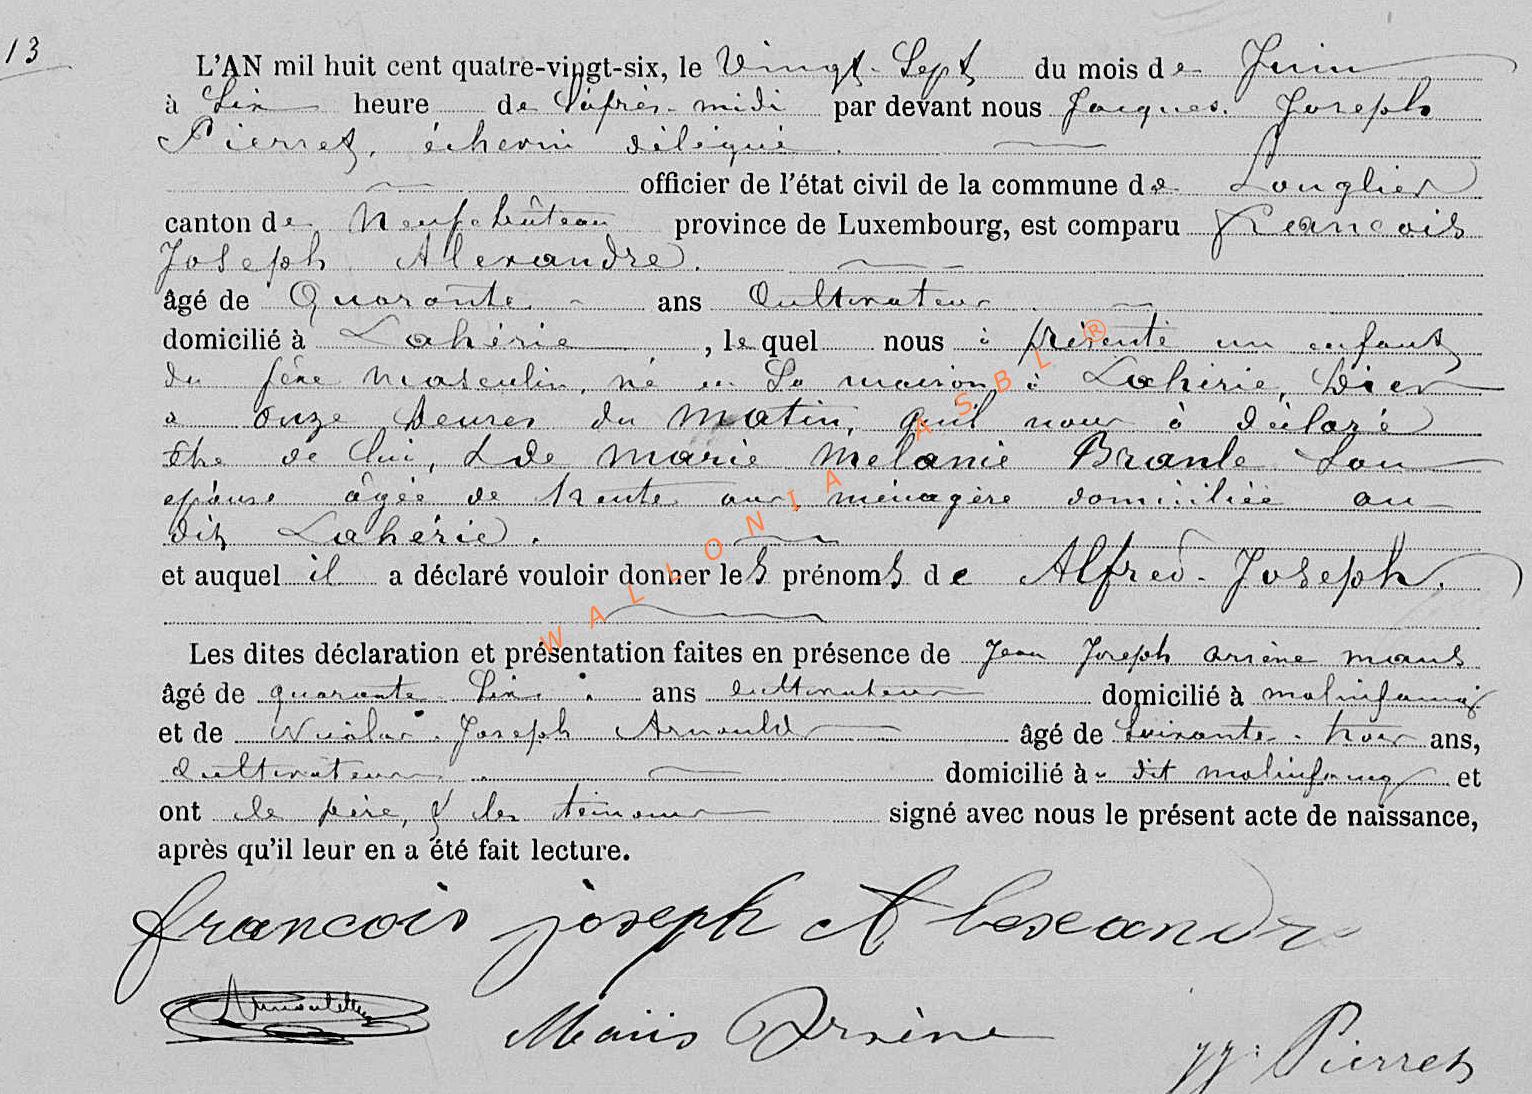 13
L'AN mil huit cent quatre-vingt-six, le Vingt-Sept du mois de Juin
à Six heure de l'après-midi par devant nous Jacques. Joseph
Pierret, échevin délégué.
officier de l'état civil de la commune de Longlier
canton de Neufchâteau province de Luxembourg, est comparu François
Joseph Alexandre.
âgé de Quarante ans Cultivateur
domicilié à Lahérie, lequel nous à présenté un enfant
du sexe masculin, né en Sa maison à Lahérie, hier
a onze heures du matin, qu'il nous à déclaré
être de lui, & de marie melanie Branle Son
épouse âgée de trente ans, ménagère domiciliée au
dit Lahérie.
et auquel il a déclaré vouloir donner les prénoms de Alfred-Joseph.
Les dites déclaration et présentation faites en présence de Jean Joseph arsène maus
âgé de quarante Six ans cultivateur domicilié à molinfaing
et de Nicolas. Joseph Arnould âgé de Soixante-trois ans,
Cultivateur domicilié à dit molinfaing et
ont le père, & les témoins signé avec nous le présent acte de naissance,
après qu'il leur en a été fait lecture.
francois joseph Alexandre
Maiis Arsène JJ: Pierret
WALLONIA ASBL ®